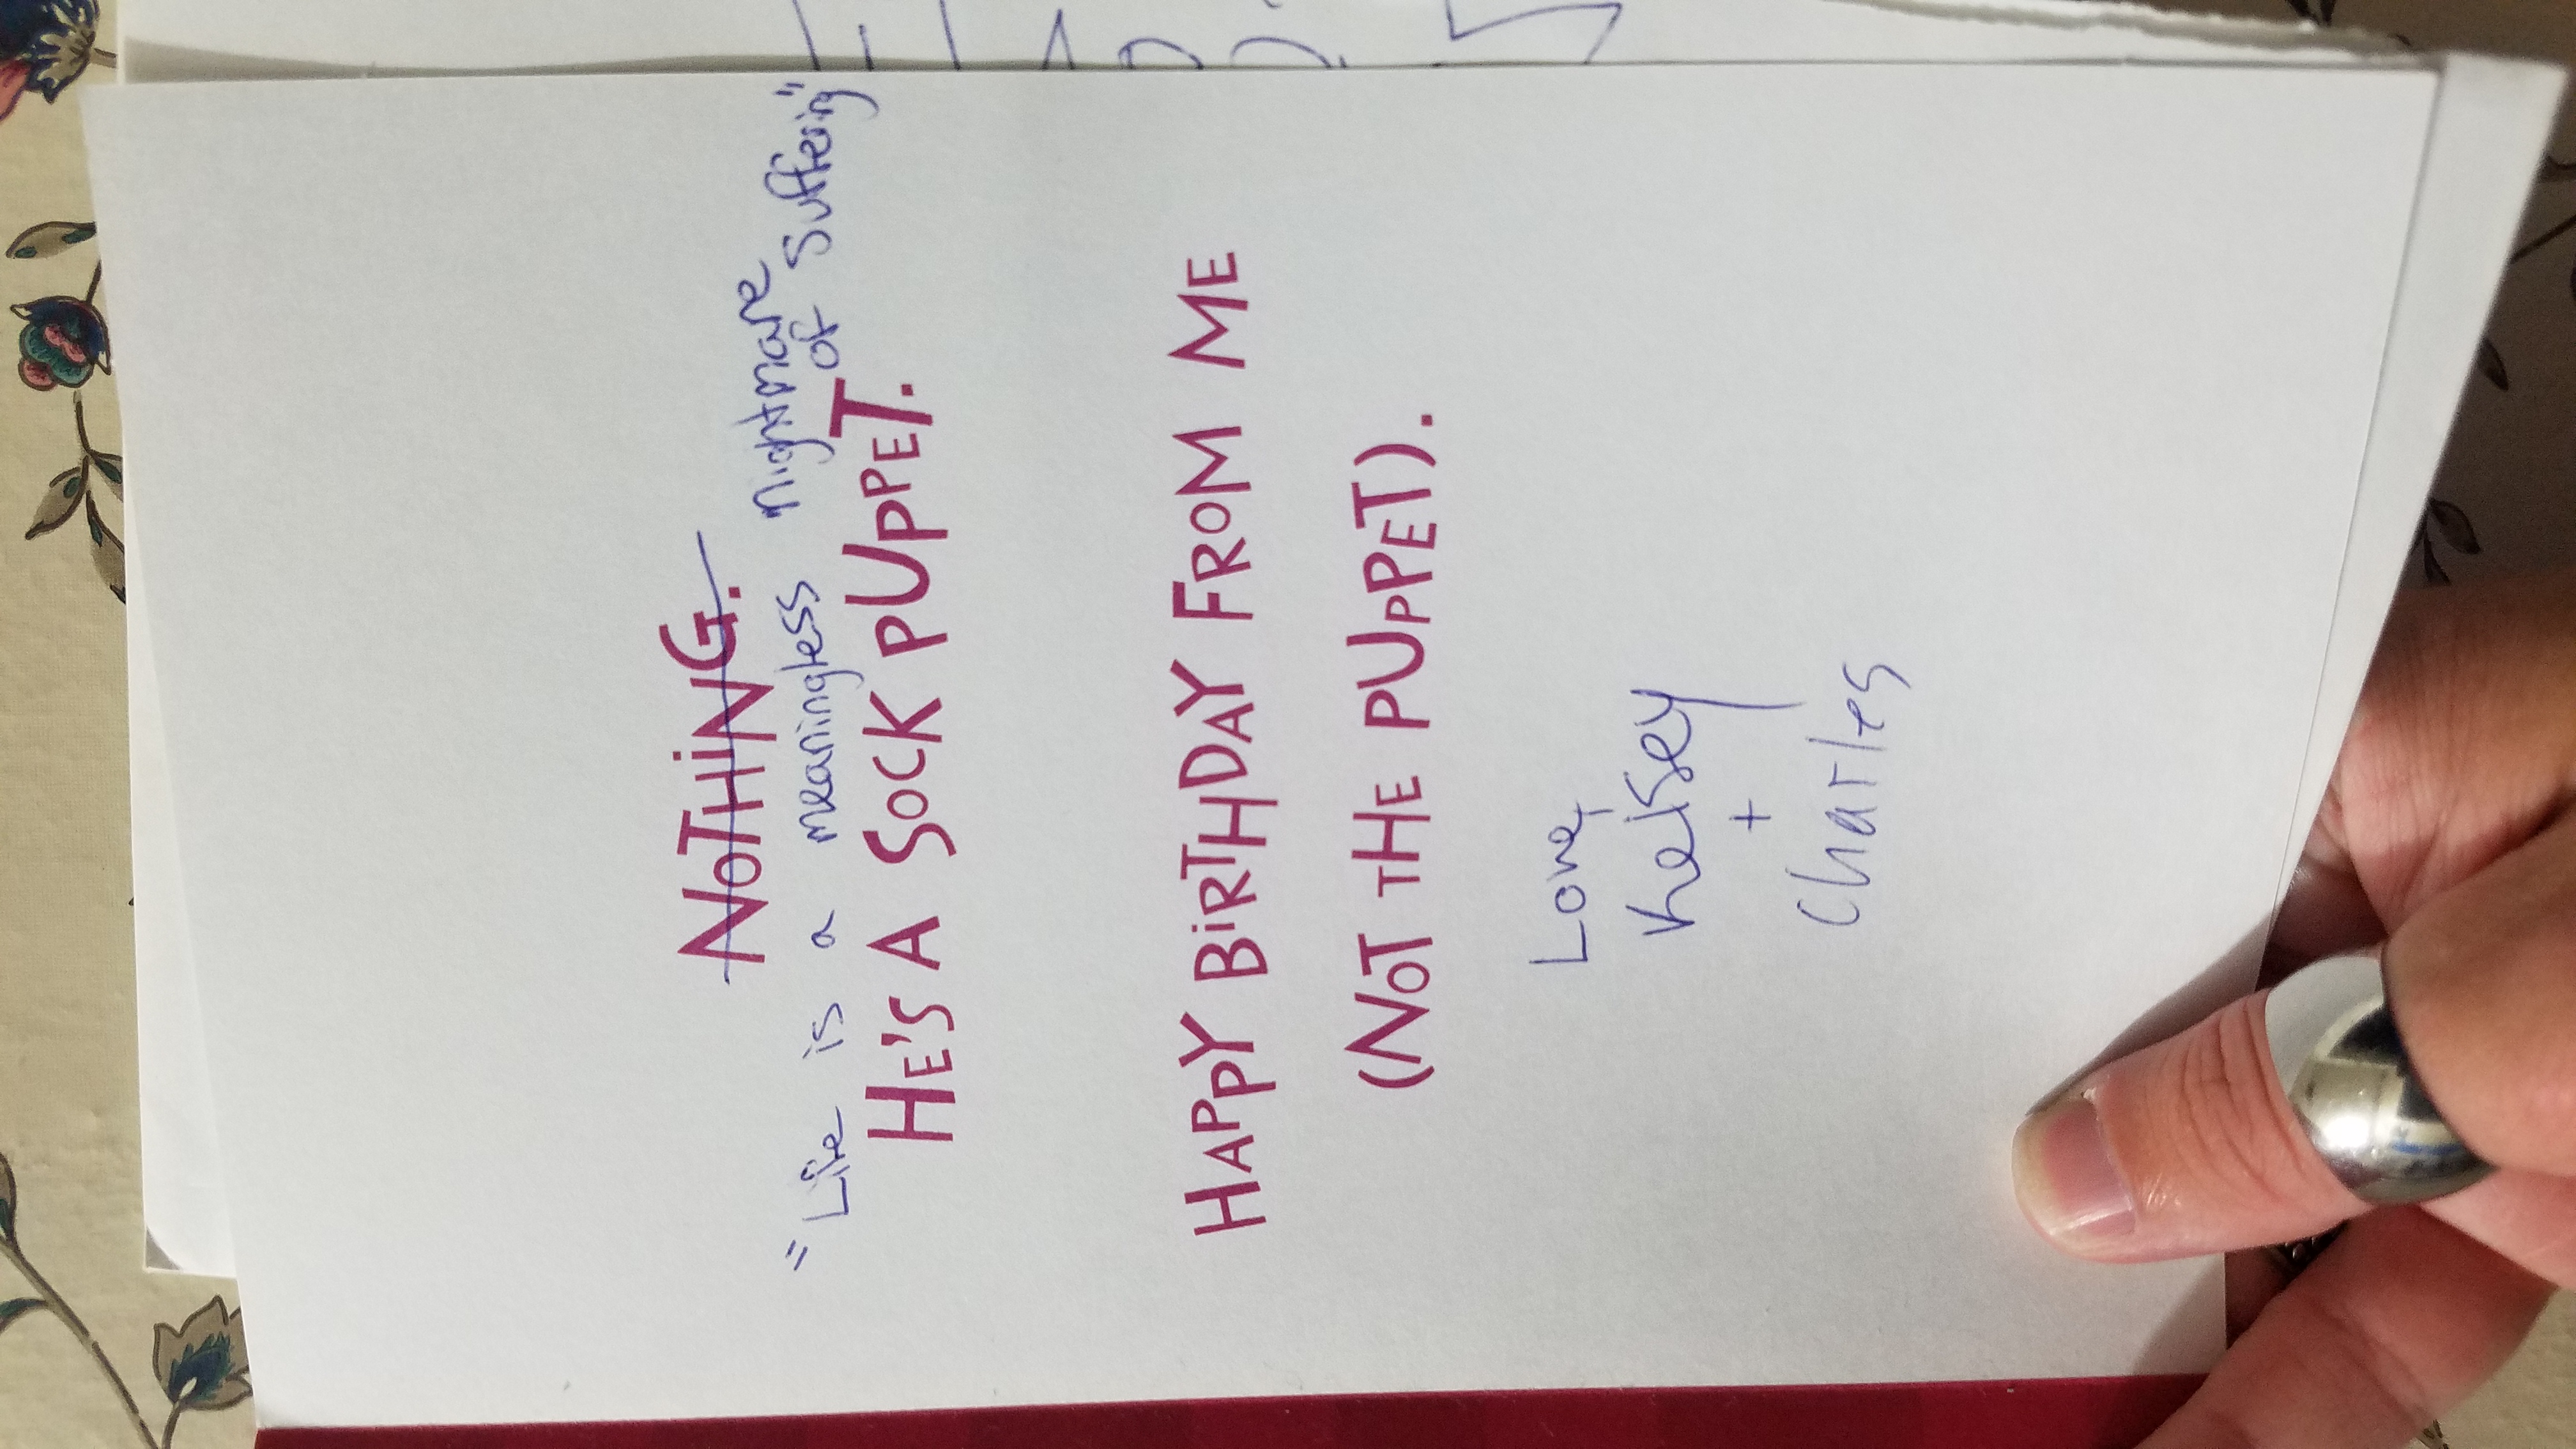 NOTHING.
"Life is a meaningless nightmare
of suffering"
HE'S A SOCK PUPPET.
HAPPY BIRTHDAY FROM ME
(NOT THE PUPPET).
Love,
Kelsey
+
Charles